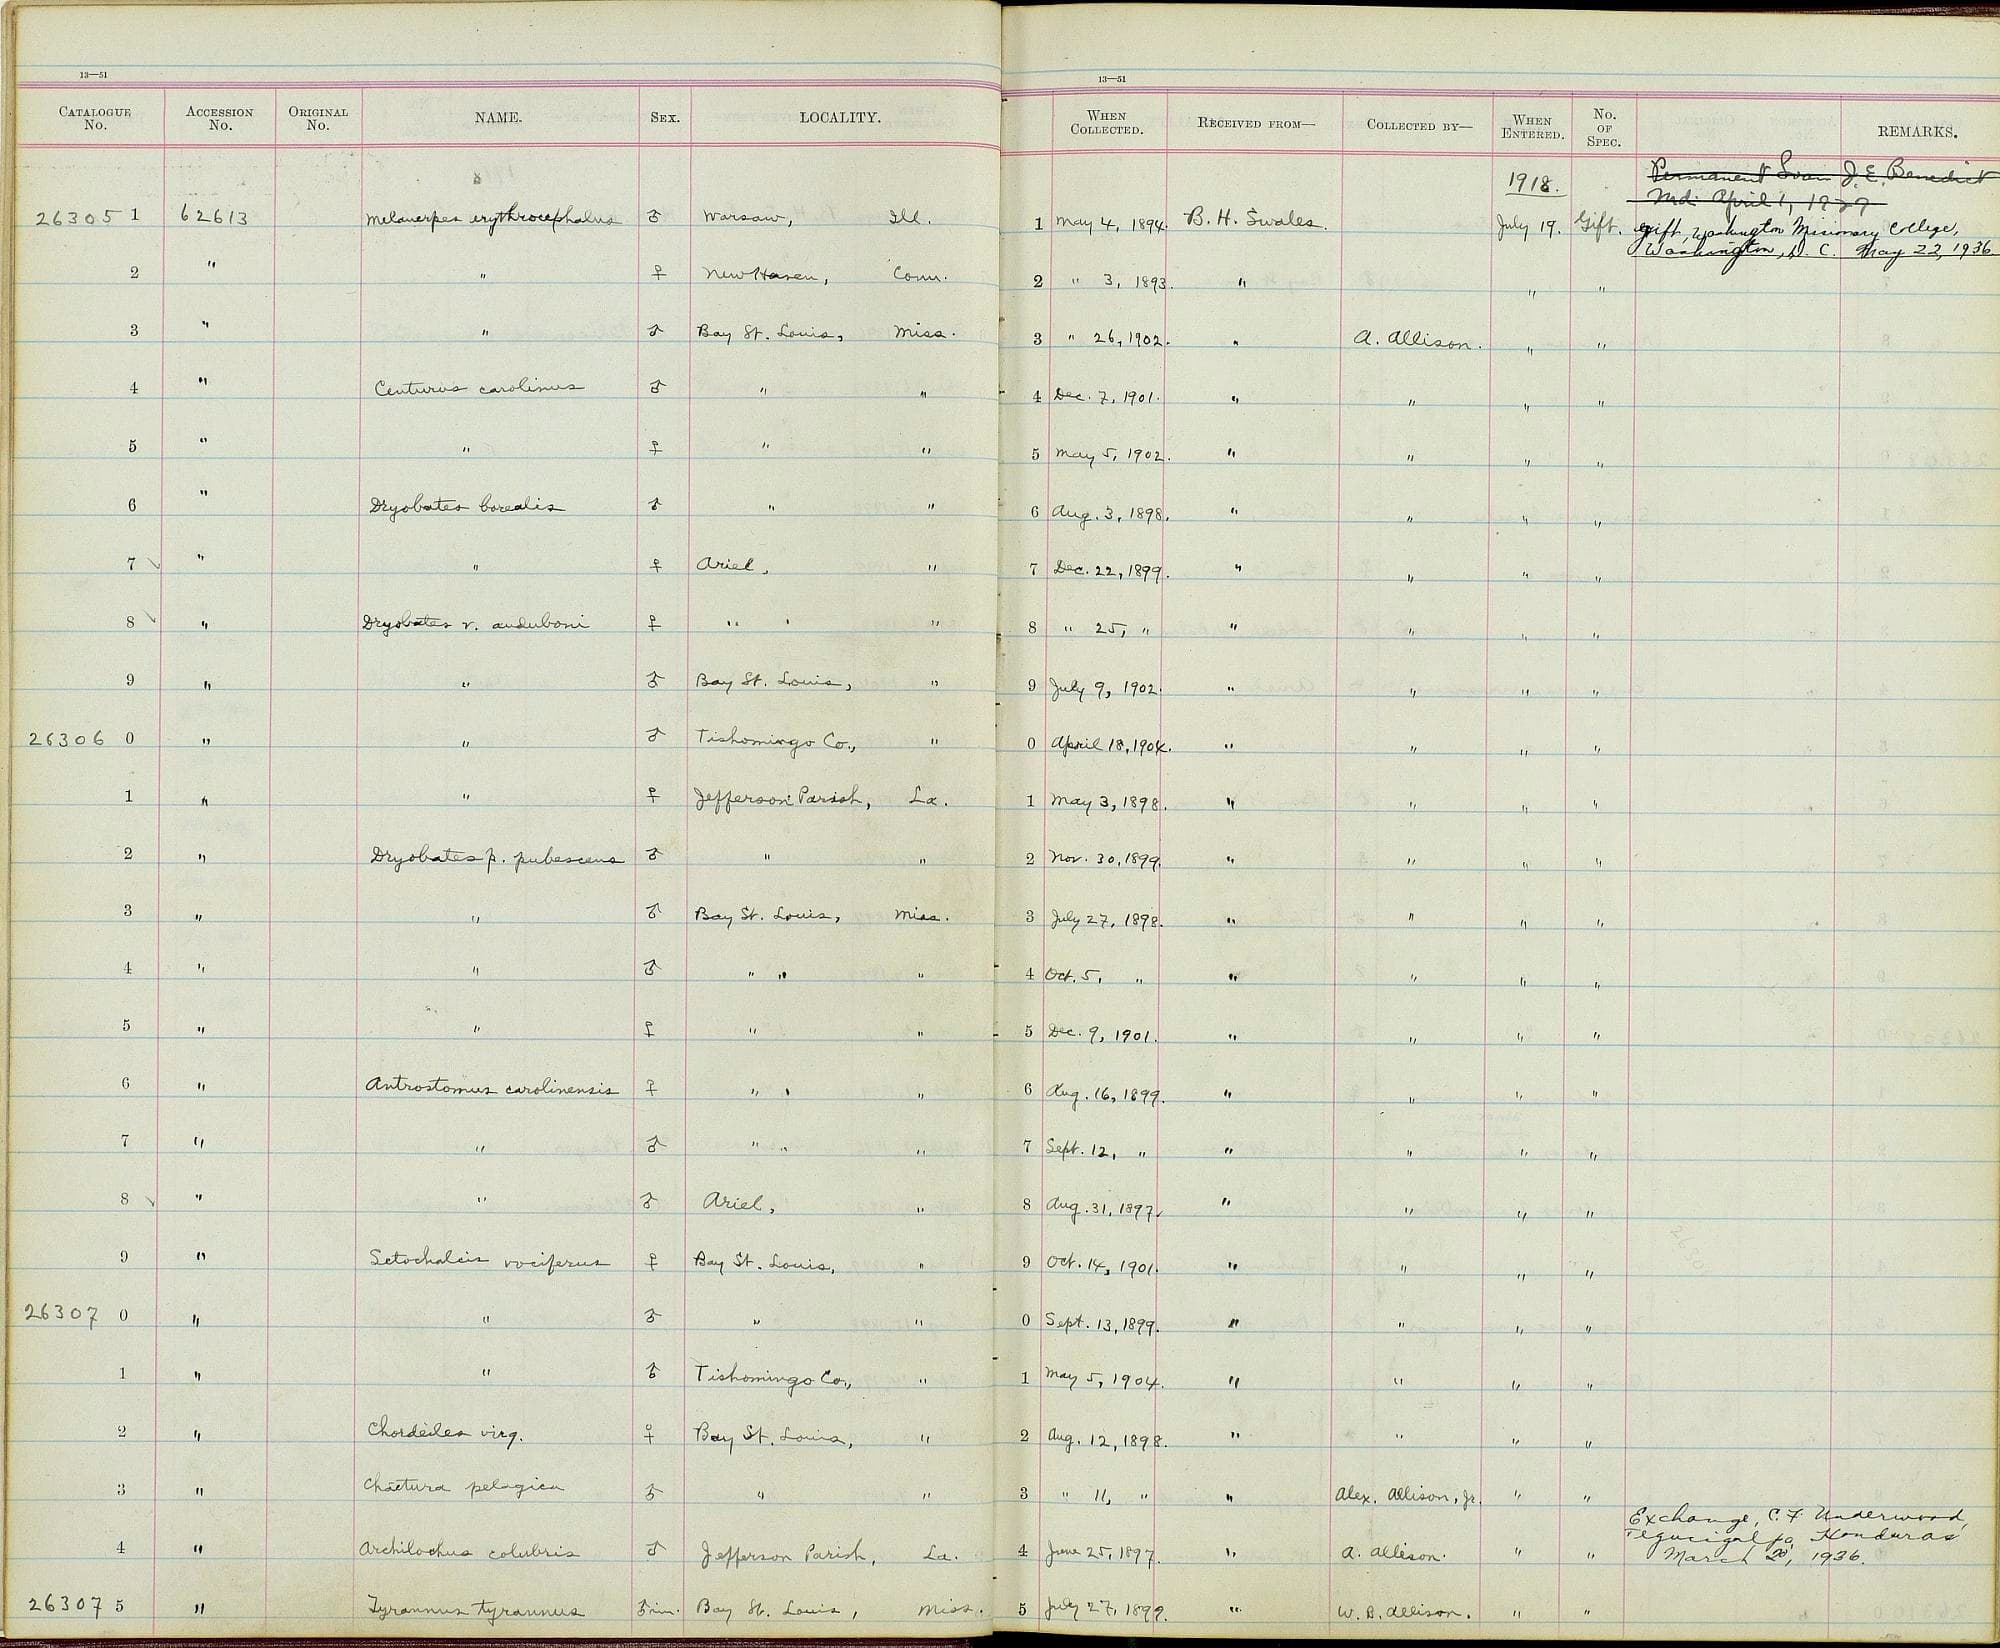 13—51
Catalogue No. Accession No. Original No. NAME. Sex. LOCALITY.
26305 1 62613 Melanerpes erythrocephalus ♂ Warsaw, Ill.
2 " " ♀ New Haven, Conn.
3 " " ♂ Bay St. Louis, Miss.
4 " Centurus carolinus ♂ " "
5 " " ♀ " "
6 " Dryobates borealis ♂ " "
7 " " ♀ Ariel, "
8 " Dryobates v. auduboni ♀ " "
9 " " ♂ Bay St. Louis, "
26306 0 " " ♂ Tishomingo Co., "
1 " " ♀ Jefferson Parish, La.
2 " Dryobates p. pubescens ♂ " "
3 " " ♂ Bay St. Louis, Miss.
4 " " ♂ " " "
5 " " ♀ " "
6 " Antrostomus carolinensis ♀ " "
7 " " ♂ " "
8 " " ♂ Ariel, "
9 " Setochalcis vociferus ♀ Bay St. Louis, "
26307 0 " " ♂ " "
1 " " ♂ Tishomingo Co., "
2 " Chordeiles virg. ♀ Bay St. Louis, "
3 " Chaetura pelagica ♂ " "
4 " Archilochus colubris ♂ Jefferson Parish, La.
26307 5 " Tyrannus tyrannus ♂ im. Bay St. Louis, Miss.
13—51
When Collected. Received from— Collected by— When Entered. No. of Spec. REMARKS.
Permanent Loan J. E. Benedict
1918. Md. April 1, 1927
1 May 4, 1894. B. H. Swales. July 19. Gift. gift, Washington Missionary College,
Washington, D. C. May 22, 1936
2 " 3, 1893. " " "
3 " 26, 1902. " A. Allison. " "
4 Dec. 7, 1901. " " " "
5 May 5, 1902. " " " "
6 Aug. 3, 1898. " " " "
7 Dec. 22, 1899. " " " "
8 " 25, " " " " "
9 July 9, 1902. " " " "
0 April 18, 1904. " " " "
1 May 3, 1898. " " " "
2 Nov. 30, 1899. " " " "
3 July 27, 1898. " " " "
4 Oct. 5, " " " " "
5 Dec. 9, 1901. " " " "
6 Aug. 16, 1899. " " " "
7 Sept. 12, " " " " "
8 Aug. 31, 1897. " " " "
9 Oct. 14, 1901. " " " "
0 Sept. 13, 1899. " " " "
1 May 5, 1904. " " " "
2 Aug. 12, 1898. " " " "
3 " 11, " " Alex. Allison, Jr. " "
Exchange, C. F. Underwood,
Tegucigalpa, Honduras
4 June 25, 1897. " A. Allison. " " March 20, 1936.
5 July 27, 1899. " W. B. Allison. " "